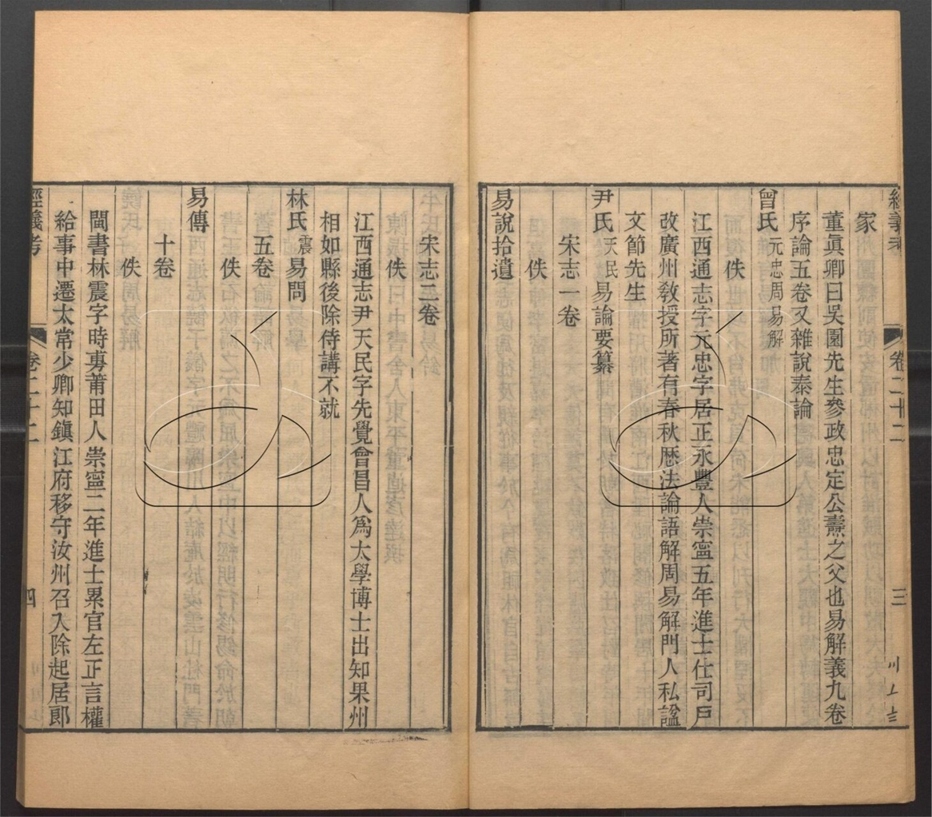 經義考 卷二十二 三
家
董眞卿曰吴園先生參政忠定公燾之父也易解義九卷
序論五卷又雜說泰論
曾氏元忠周易解
佚
江西通志字元忠字居正永豐人崇寧五年進士仕司戶
改廣州敎授所著有春秋歷法論語解周易解門人私謚
文節先生
尹氏天民易論要纂
宋志一卷
佚
易說拾遺
宋志二卷
佚
江西通志尹天民字先覺會昌人爲太學博士出知果州
相如縣後除侍講不就
林氏震易問
五卷
佚
易傳
十卷
佚
閩書林震字時旉莆田人崇寧二年進士累官左正言權
給事中遷太常少卿知鎭江府移守汝州召入除起居郞
經義考 卷二十二 四